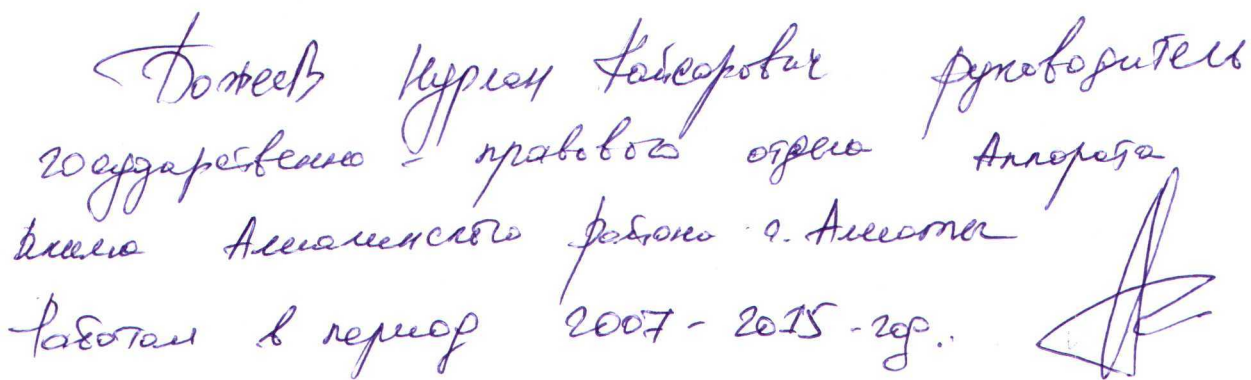 Божеев Нурлан Кайсарович руководитель
государственно - правового отдела Аппарата
Акима Алмалинского района г. Алматы
Работал в период 2007 - 2015 - год..